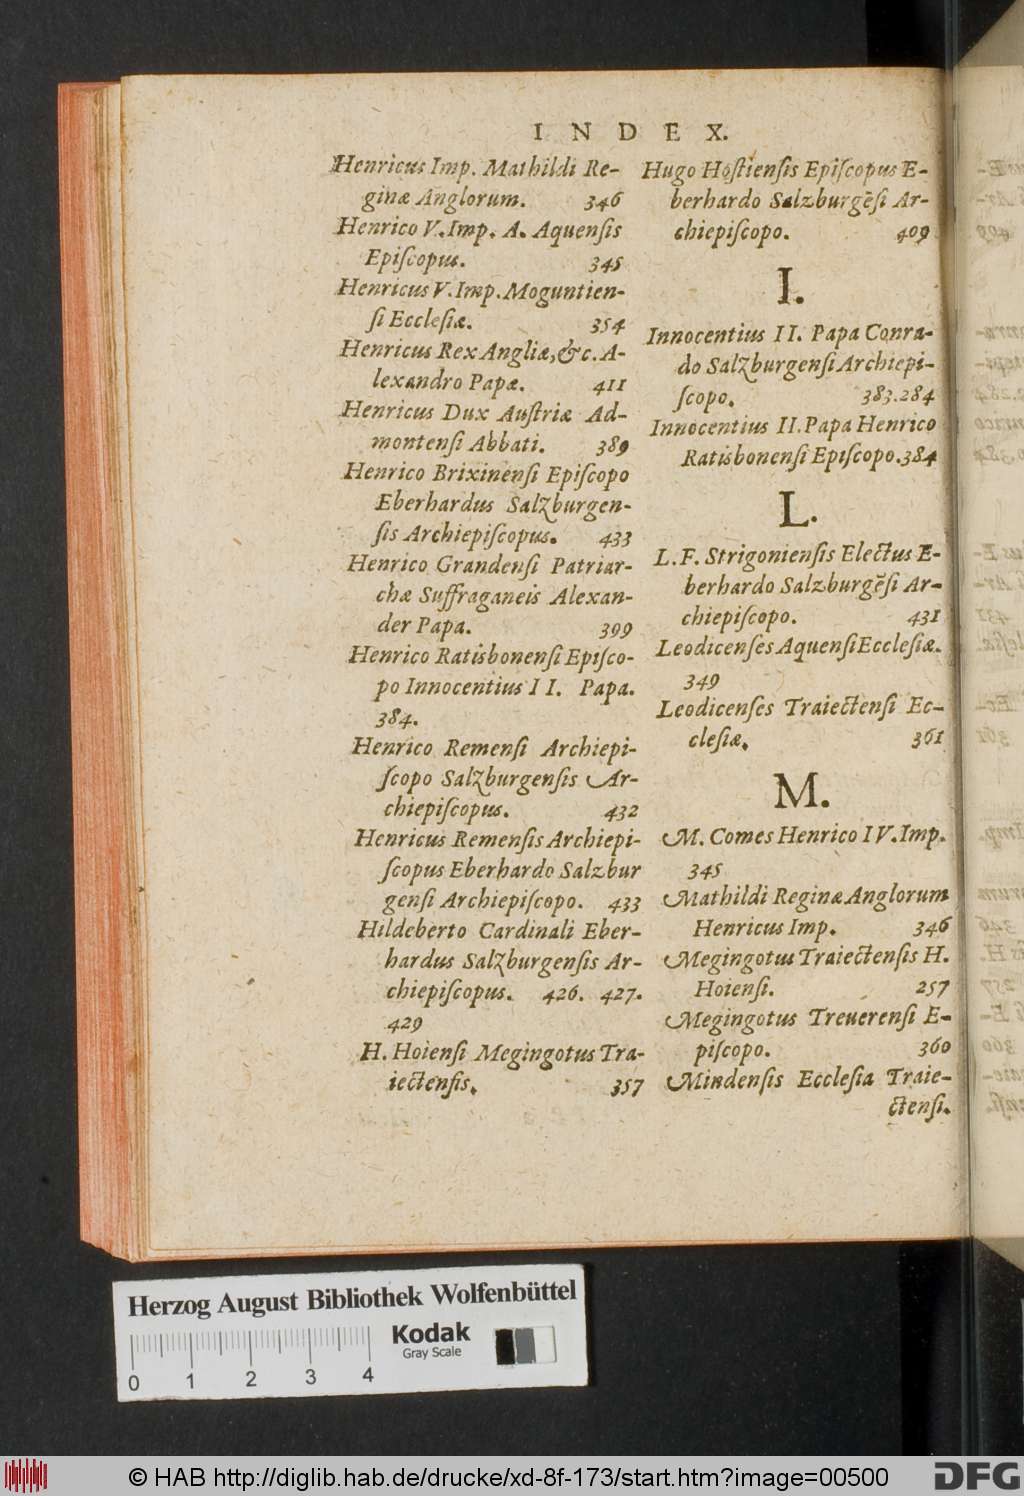 INDEX.
Henricus Imp. Mathildi Re-
ginæ Anglorum. 346
Henrico V. Imp. A. Aquensis
Episcopus. 345
Henricus V. Imp. Moguntien-
si Ecclesiæ. 354
Henricus Rex Angliæ, &c. A-
lexandro Papæ. 411
Henricus Dux Austriæ Ad-
montensi Abbati. 389
Henrico Brixinensi Episcopo
Eberhardus Salzburgen-
sis Archiepiscopus. 433
Henrico Grandensi Patriar-
chæ Suffraganeis Alexan-
der Papa. 399
Henrico Ratisbonensi Episco-
po Innocentius II. Papa.
384.
Henrico Remensi Archiepi-
scopo Salzburgensis Ar-
chiepiscopus. 432
Henricus Remensis Archiepi-
scopus Eberhardo Salzbur
gensi Archiepiscopo. 433
Hildeberto Cardinali Eber-
hardus Salzburgensis Ar-
chiepiscopus. 426. 427.
429
H. Hoiensi Megingotus Tra-
iectensis. 357
Hugo Hostiensis Episcopus E-
berhardo Salzburgẽsi Ar-
chiepiscopo. 409
I.
Innocentius II. Papa Conra-
do Salzburgensi Archiepi-
scopo. 383.284
Innocentius II. Papa Henrico
Ratisbonensi Episcopo. 384
L.
L. F. Strigoniensis Electus E-
berhardo Salzburgẽsi Ar-
chiepiscopo. 431
Leodicenses Aquensi Ecclesiæ.
349
Leodicenses Traiectensi Ec-
clesiæ. 361
M.
M. Comes Henrico IV. Imp.
345
Mathildi Reginæ Anglorum
Henricus Imp. 346
Megingotus Traiectensis H.
Hoiensi. 257
Megingotus Treuerensi E-
piscopo. 360
Mindensis Ecclesia Traie-
ctensi.
Herzog August Bibliothek Wolfenbüttel
Kodak
Gray Scale
0 1 2 3 4
© HAB http://diglib.hab.de/drucke/xd-8f-173/start.htm?image=00500
DFG